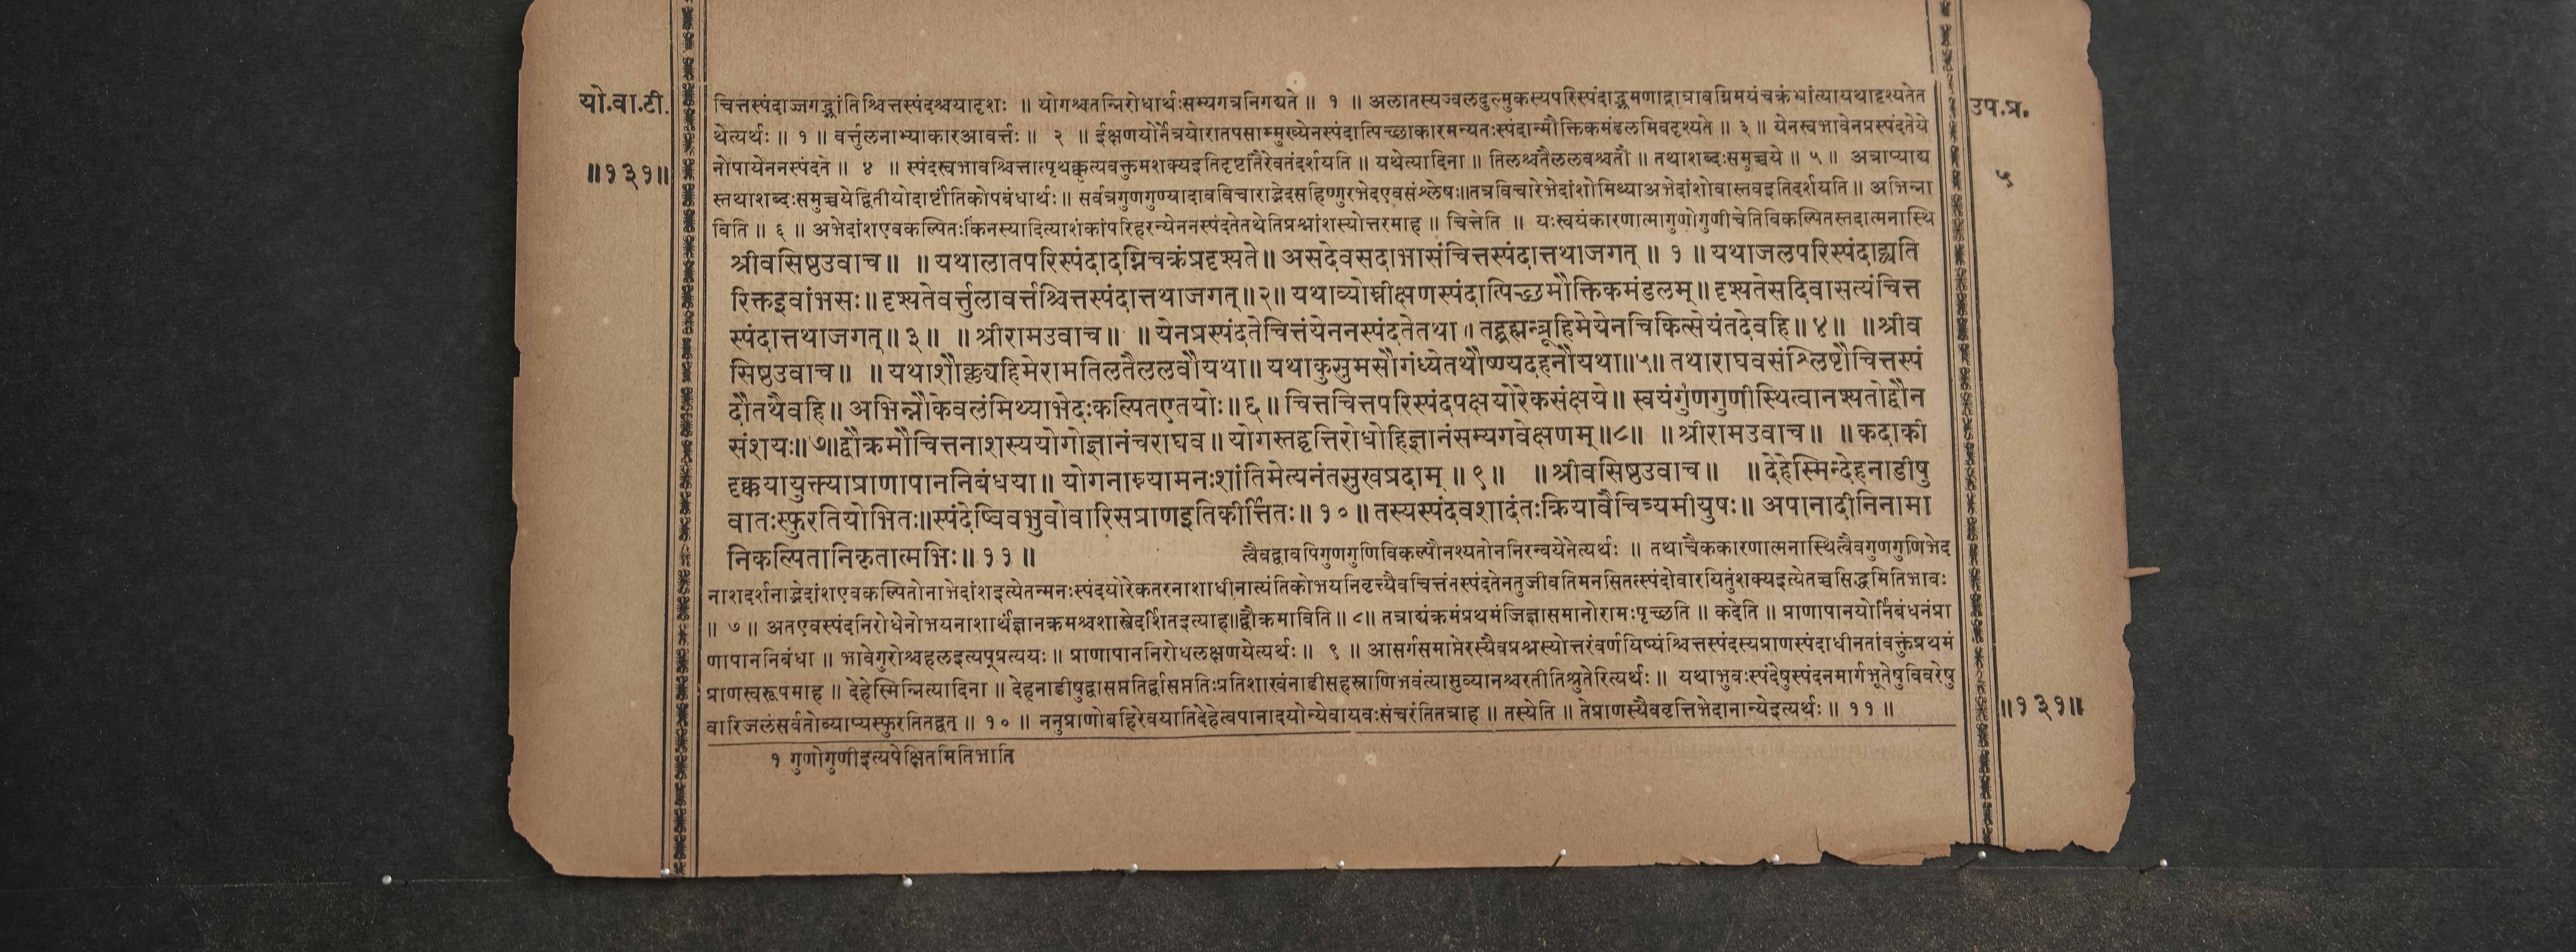 यो.वा.टी.
॥१३१॥
उप.प्र.
५
चित्तस्पंदाज्जगद्भ्रांतिश्चित्तस्पंदश्चयादृशः ॥ योगश्चतन्निरोधार्थःसम्यगत्रनिगद्यते ॥ १ ॥ अलातस्यज्वलदुल्मुकस्यपरिस्पंदाद्भ्रमणाद्रात्रावग्निमयंचक्रंभ्रांत्यायथादृश्यतेत
थेत्यर्थः ॥ १ ॥ वर्त्तुलनाभ्याकारआवर्त्तः ॥ २ ॥ ईक्षणयोर्नेत्रयोरातपसाम्मुख्येनस्पंदात्पिच्छाकारमन्यतःस्पंदान्मौक्तिकमंडलमिवदृश्यते ॥ ३ ॥ येनस्वभावेनप्रस्पंदतेये
नोपायेननस्पंदते ॥ ४ ॥ स्पंदस्वभावश्चित्तात्पृथक्कृत्यवक्तुमशक्यइतिदृष्टांतैरेवतंदर्शयति ॥ यथेत्यादिना ॥ तिलश्चतैललवश्चतौ ॥ तथाशब्दःसमुच्चये ॥ ५ ॥ अत्राप्याद्य
स्तथाशब्दःसमुच्चयेद्वितीयोदार्ष्टांतिकोपबंधार्थः ॥ सर्वत्रगुणगुण्यादावविचाराद्भेदसहिष्णुरभेदएवसंश्लेषः॥तत्रविचारेभेदांशोमिथ्याअभेदांशोवास्तवइतिदर्शयति ॥ अभिन्ना
विति ॥ ६ ॥ अभेदांशएवकल्पितःकिंनस्यादित्याशंकांपरिहरन्येननस्पंदतेतथेतिप्रश्नांशस्योत्तरमाह ॥ चित्तेति ॥ यःस्वयंकारणात्मागुणोगुणीचेतिविकल्पितस्तदात्मनास्थि
श्रीवसिष्ठउवाच॥ ॥ यथालातपरिस्पंदादग्निचक्रंप्रदृश्यते॥ असदेवसदाभासंचित्तस्पंदात्तथाजगत् ॥ १ ॥ यथाजलपरिस्पंदाद्व्यति
रिक्तइवांभसः॥ दृश्यतेवर्त्तुलावर्त्तश्चित्तस्पंदात्तथाजगत्॥२॥ यथाव्योम्नीक्षणस्पंदात्पिच्छमौक्तिकमंडलम्॥ दृश्यतेसदिवासत्यंचित्त
स्पंदात्तथाजगत्॥ ३॥ ॥ श्रीरामउवाच॥ ॥ येनप्रस्पंदतेचित्तंयेननस्पंदतेतथा॥ तद्ब्रह्मन्ब्रूहिमेयेनचिकित्सेयंतदेवहि॥ ४॥ ॥श्रीव
सिष्ठउवाच॥ ॥ यथाशौक्ल्यहिमेरामतिलतैललवौयथा॥ यथाकुसुमसौगंध्येतथौष्ण्यदहनौयथा॥५॥ तथाराघवसंश्लिष्टौचित्तस्पं
दौतथैवहि॥ अभिन्नौकेवलंमिथ्याभेदःकल्पितएतयोः॥ ६॥ चित्तचित्तपरिस्पंदपक्षयोरेकसंक्षये॥ स्वयंगुणगुणीस्थित्वानश्यतोद्वौन
संशयः॥७॥द्वौक्रमौचित्तनाशस्ययोगोज्ञानंचराघव॥ योगस्तद्वृत्तिरोधोहिज्ञानंसम्यगवेक्षणम्॥८॥ ॥ श्रीरामउवाच॥ ॥ कदाकी
दृक्कयायुक्त्याप्राणापाननिबंधया॥ योगनाम्न्यामनःशांतिमेत्यनंतसुखप्रदाम् ॥ ९॥ ॥श्रीवसिष्ठउवाच॥ ॥देहेस्मिन्देहनाडीषु
वातःस्फुरतियोभितः॥स्पंदेष्विवभुवोवारिसप्राणइतिकीर्त्तितः॥ १०॥ तस्यस्पंदवशादंतःक्रियावैचित्र्यमीयुषः॥ अपानादीनिनामा
निकल्पितानिकृतात्मभिः॥ ११॥
त्वैवद्वावपिगुणगुणिविकल्पौनश्यतोननिरन्वयेनेत्यर्थः ॥ तथाचैककारणात्मनास्थित्वैवगुणगुणिभेद
नाशदर्शनाद्भेदांशएवकल्पितोनाभेदांशइत्येतन्मनःस्पंदयोरेकतरनाशाधीनात्यंतिकोभयनिवृत्त्यैवचित्तंनस्पंदतेनतुजीवतिमनसितत्स्पंदोवारयितुंशक्यइत्येतच्चसिद्धमितिभावः
॥ ७ ॥ अतएवस्पंदनिरोधेनोभयनाशार्थंज्ञानक्रमश्चशास्त्रेदर्शितइत्याह॥द्वौक्रमाविति॥ ८॥ तत्राद्यंक्रमंप्रथमंजिज्ञासमानोरामःपृच्छति ॥ कदेति ॥ प्राणापानयोर्निबंधनंप्रा
णापाननिबंधा ॥ भावेगुरोश्चहलइत्यप्प्रत्ययः ॥ प्राणापाननिरोधलक्षणयेत्यर्थः ॥ ९ ॥ आसर्गसमाप्तेरस्यैवप्रश्नस्योत्तरंवर्णयिष्यंश्चित्तस्पंदस्यप्राणस्पंदाधीनतांवक्तुंप्रथमं
प्राणस्वरूपमाह ॥ देहेस्मिन्नित्यादिना ॥ देहनाडीषुद्वासप्ततिर्द्वासप्ततिःप्रतिशाखंनाडीसहस्राणिभवंत्यासुव्यानश्चरतीतिश्रुतेरित्यर्थः ॥ यथाभुवःस्पंदेषुस्पंदनमार्गभूतेषुविवरेषु
वारिजलंसर्वतोव्याप्यस्फुरतितद्वत् ॥ १० ॥ ननुप्राणोबहिरेवयातिदेहेत्वपानादयोन्येवायवःसंचरंतितत्राह ॥ तस्येति ॥ तेप्राणस्यैववृत्तिभेदानान्येइत्यर्थः ॥ ११ ॥
॥१३१॥
१ गुणोगुणीइत्यपेक्षितमितिभाति